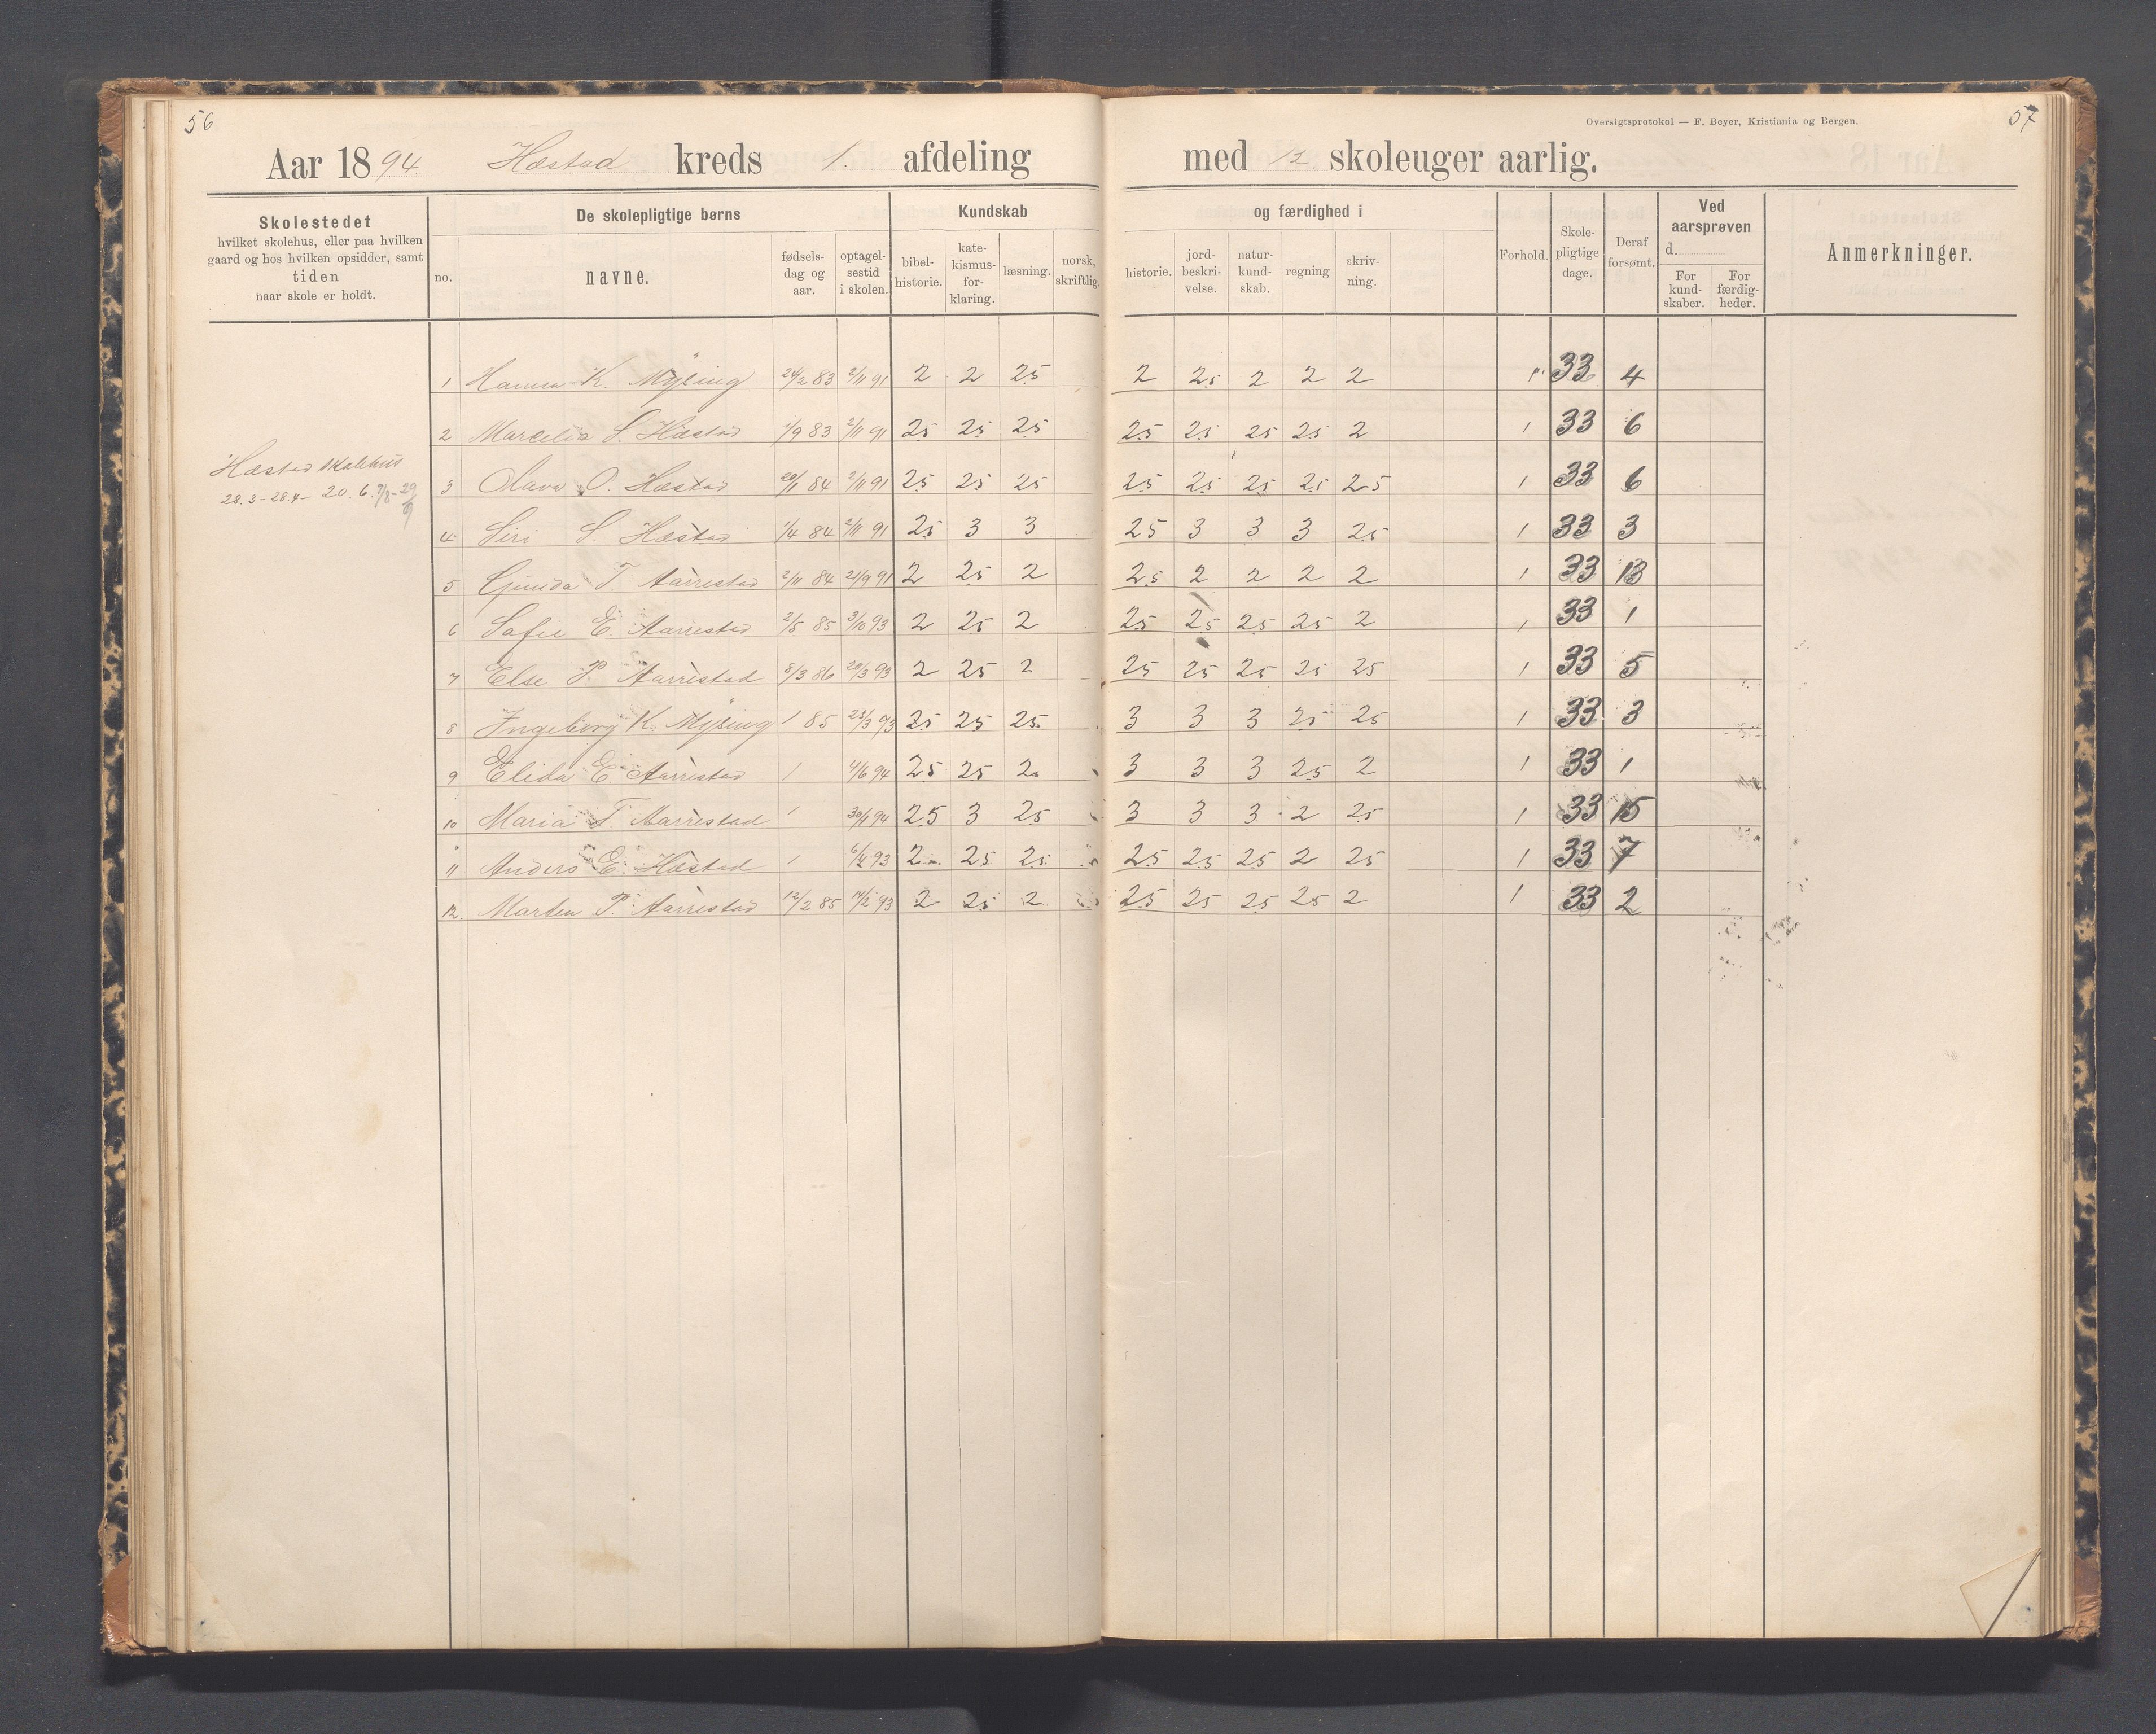 56
Oversigtsprotokol — F. Beyer, Kristiania og Bergen.
57
Aar 1894 Hæstad kreds 1. afdeling med 12 skoleuger aarlig.
Skolestedet
hvilket skolehus, eller paa hvilken
gaard og hos hvilken opsidder, samt
tiden
naar skole er holdt.
De skolepligtige børns
no.
navne.
fødsels-
dag og
aar.
optagel-
sestid
i skolen.
Kundskab
bibel-
historie.
kate-
kismus-
for-
klaring.
læsning.
norsk,
skriftlig.
og færdighed i
historie.
jord-
beskri-
velse.
natur-
kund-
skab.
regning
skriv-
ning.
Forhold.
Skole-
pligtige
dage.
Deraf
forsømt.
Ved
aarsprøven
d.
For
kund-
skaber.
For
færdig-
heder.
Anmerkninger.
Hæstad skolehus
28.3-28.4- 20.6.
1 Hanna K. Mysing 24/2 83 2/11 91 2 2 25 2 25 2 2 2 1 33 4
2 Marcelia S. Hæstad 1/9 83 2/11 91 25 25 25 25 25 25 25 2 1 33 6
3 Olava O. Hæstad 20/11 84 2/11 91 25 25 25 25 25 25 25 25 1 33 6
4 Siri S. Hæstad 1/4 84 2/11 91 25 3 3 25 3 3 3 25 1 33 3
5 Gunda T. Aarrestad 2/11 84 21/9 91 2 25 2 25 2 2 2 2 1 33 13
6 Sofie E. Aarrestad 2/5 85 3/10 93 2 25 2 25 25 25 25 2 1 33 1
7 Else P. Aarrestad 8/3 86 20/3 93 2 25 2 25 25 25 25 25 1 33 5
8 Ingeborg K. Mysing 1 85 21/3 93 25 25 25 3 3 3 25 25 1 33 3
9 Elida E. Aarrestad 1 4/6 94 25 25 2 3 3 3 25 2 1 33 1
10 Maria T. Aarrestad 1 30/1 94 25 3 25 3 3 3 2 25 1 33 15
11 Anders E. Hæstad 1 6/4 93 2 25 25 25 25 25 2 25 1 33 7
12. Marten P. Aarrestad 12/2 85 14/2 93 2 25 2 25 25 25 25 2 1 33 2